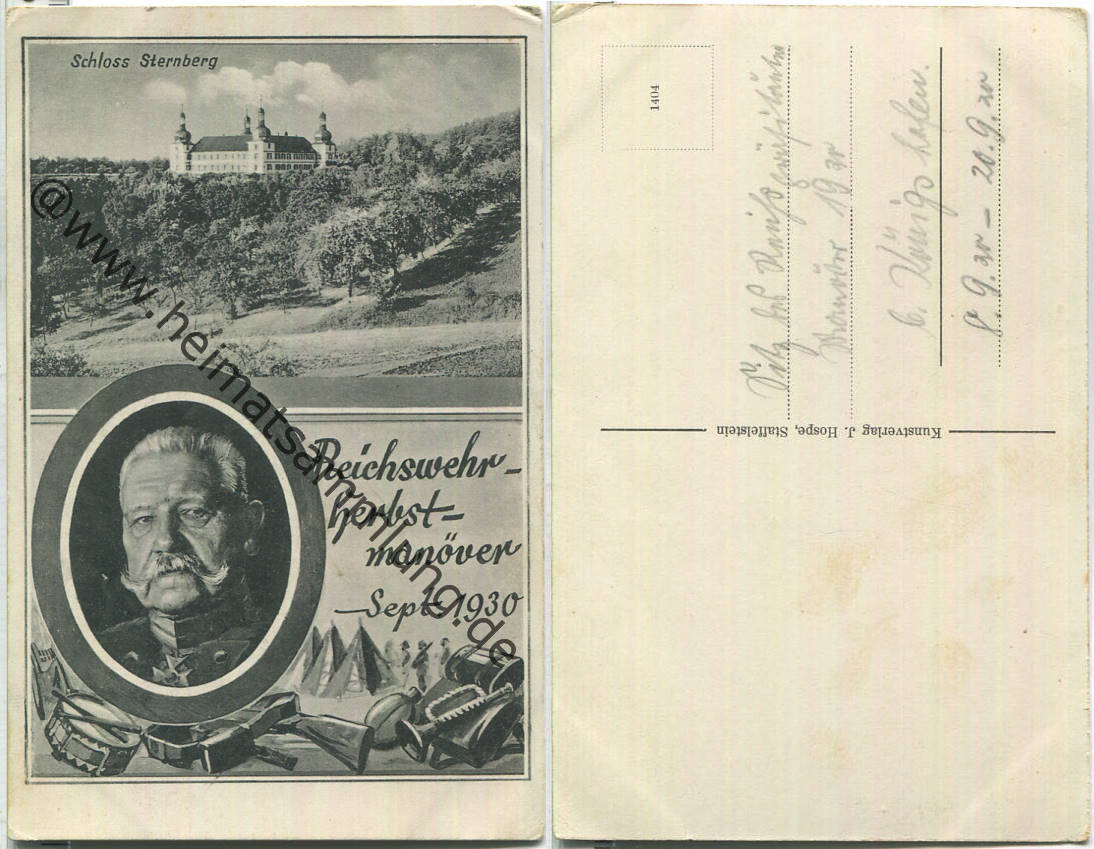 Schloss Sternberg
Reichswehr-
herbst-
manöver
Sept. 1930
@www.heimatsammlung.de
1404
Sitz des
Manöver 1930
b. Königshofen.
9.30 - 20.9.30
Kunstverlag J. Hospe, Staffelstein